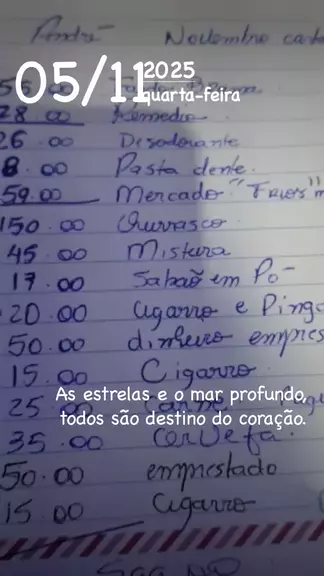 André Novembro cart
05/11
2025
quarta-feira
28.00 Remedio
26.00 Disodorante
8.00 Pasta dente.
59.00 Mercado "Frios" m
150.00 Churrasco
45.00 Mistura
17.00 Sabaõ em Pó-
20.00 Cigarro e Pinga
50.00 dinheiro empres
15.00 Cigarro
As estrelas e o mar profundo,
todos são destino do coração.
25
35.00 Cerveja.
50.00 emprestado
15.00 Cigarro